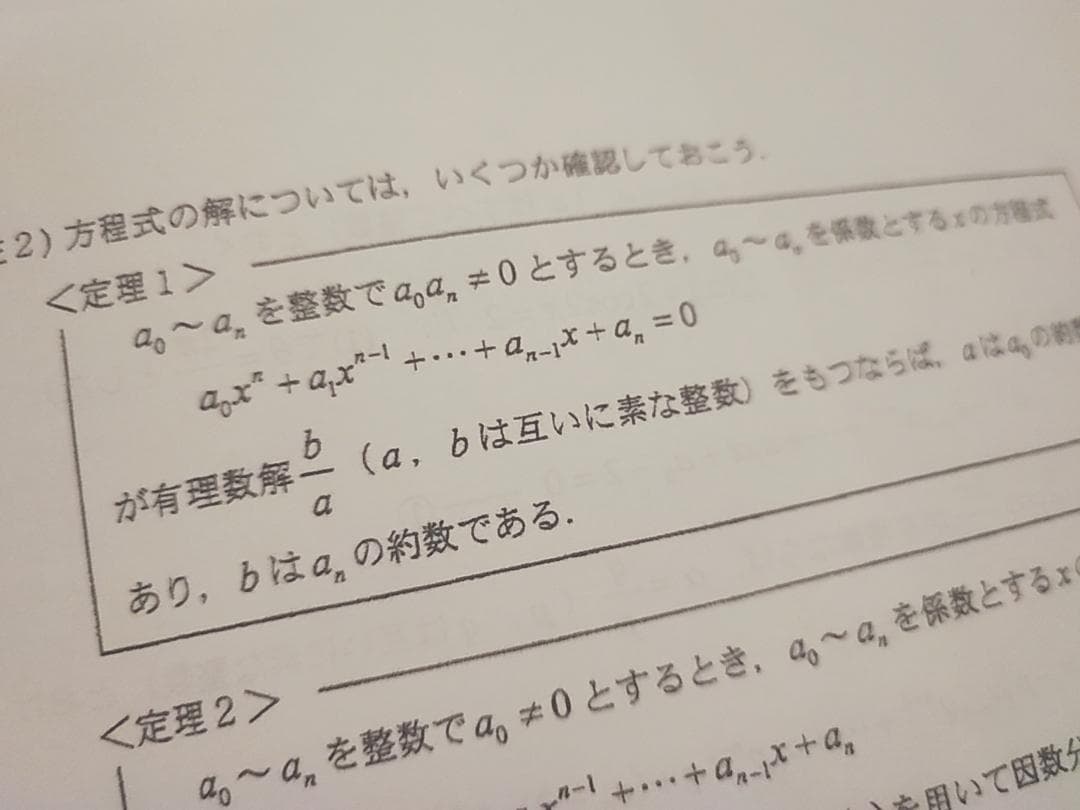 注2) 方程式の解については，いくつか確認しておこう．
＜定理1＞
a₀～aₙを整数でa₀aₙ≠0とするとき，a₀～aₙを係数とするxの方程式
a₀xⁿ + a₁xⁿ⁻¹ + ⋯ + aₙ₋₁x + aₙ = 0
が有理数解 b/a（a，bは互いに素な整数）をもつならば，aはa₀の約数
あり，bはaₙの約数である．
＜定理2＞
a₀～aₙを整数でa₀≠0とするとき，a₀～aₙを係数とするx
xⁿ⁻¹ + ⋯ + aₙ₋₁x + aₙ
を用いて因数分